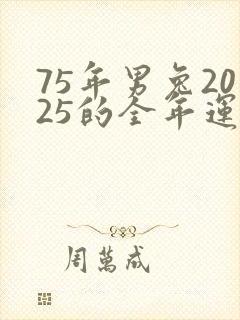 75年男兔20
25的全年運
周萬成